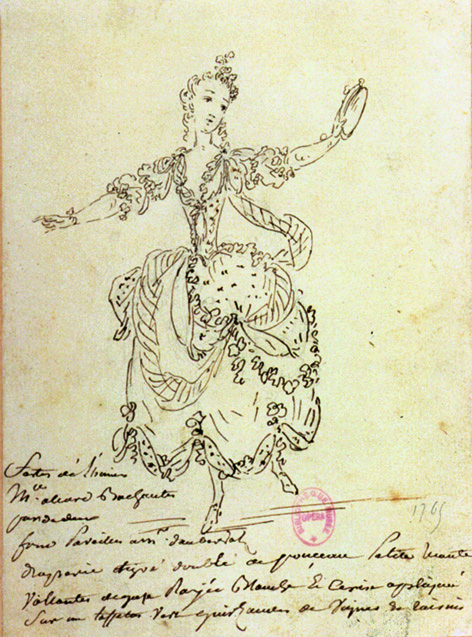 Festes de l'himen
Mlle alard Bachante
pas de deux
forme Pareilles a mr. dauberval
draperie tigré doublé de ponceau Petite mante
Vollantes de gaze Rayée Blanche Et Cerise appliqué
Sur un taffetas Vert guirlandes de Vignes de raisins
1765
BIBLIOTHEQUE MUSEE
OPERA